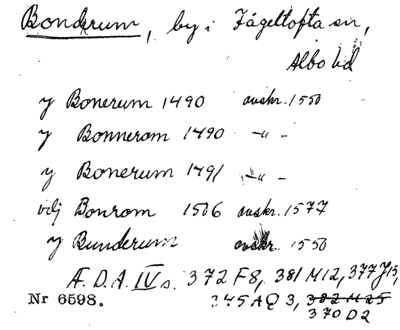 Bonderum, by i Fågeltofta sn,
Albo hd
y Bonerum 1490 avskr. 1550
y Bonnerom 1490 –"–
y Bonerum 1491 –"–
vdj Bonrom 1506 avskr. 1577
y Bunderum avskr. 1550
Æ. D. A. IV s. 372 F8, 381 M12, 377 J13,
Nr 6598. 345 AQ 3, 382 M25
370 D2